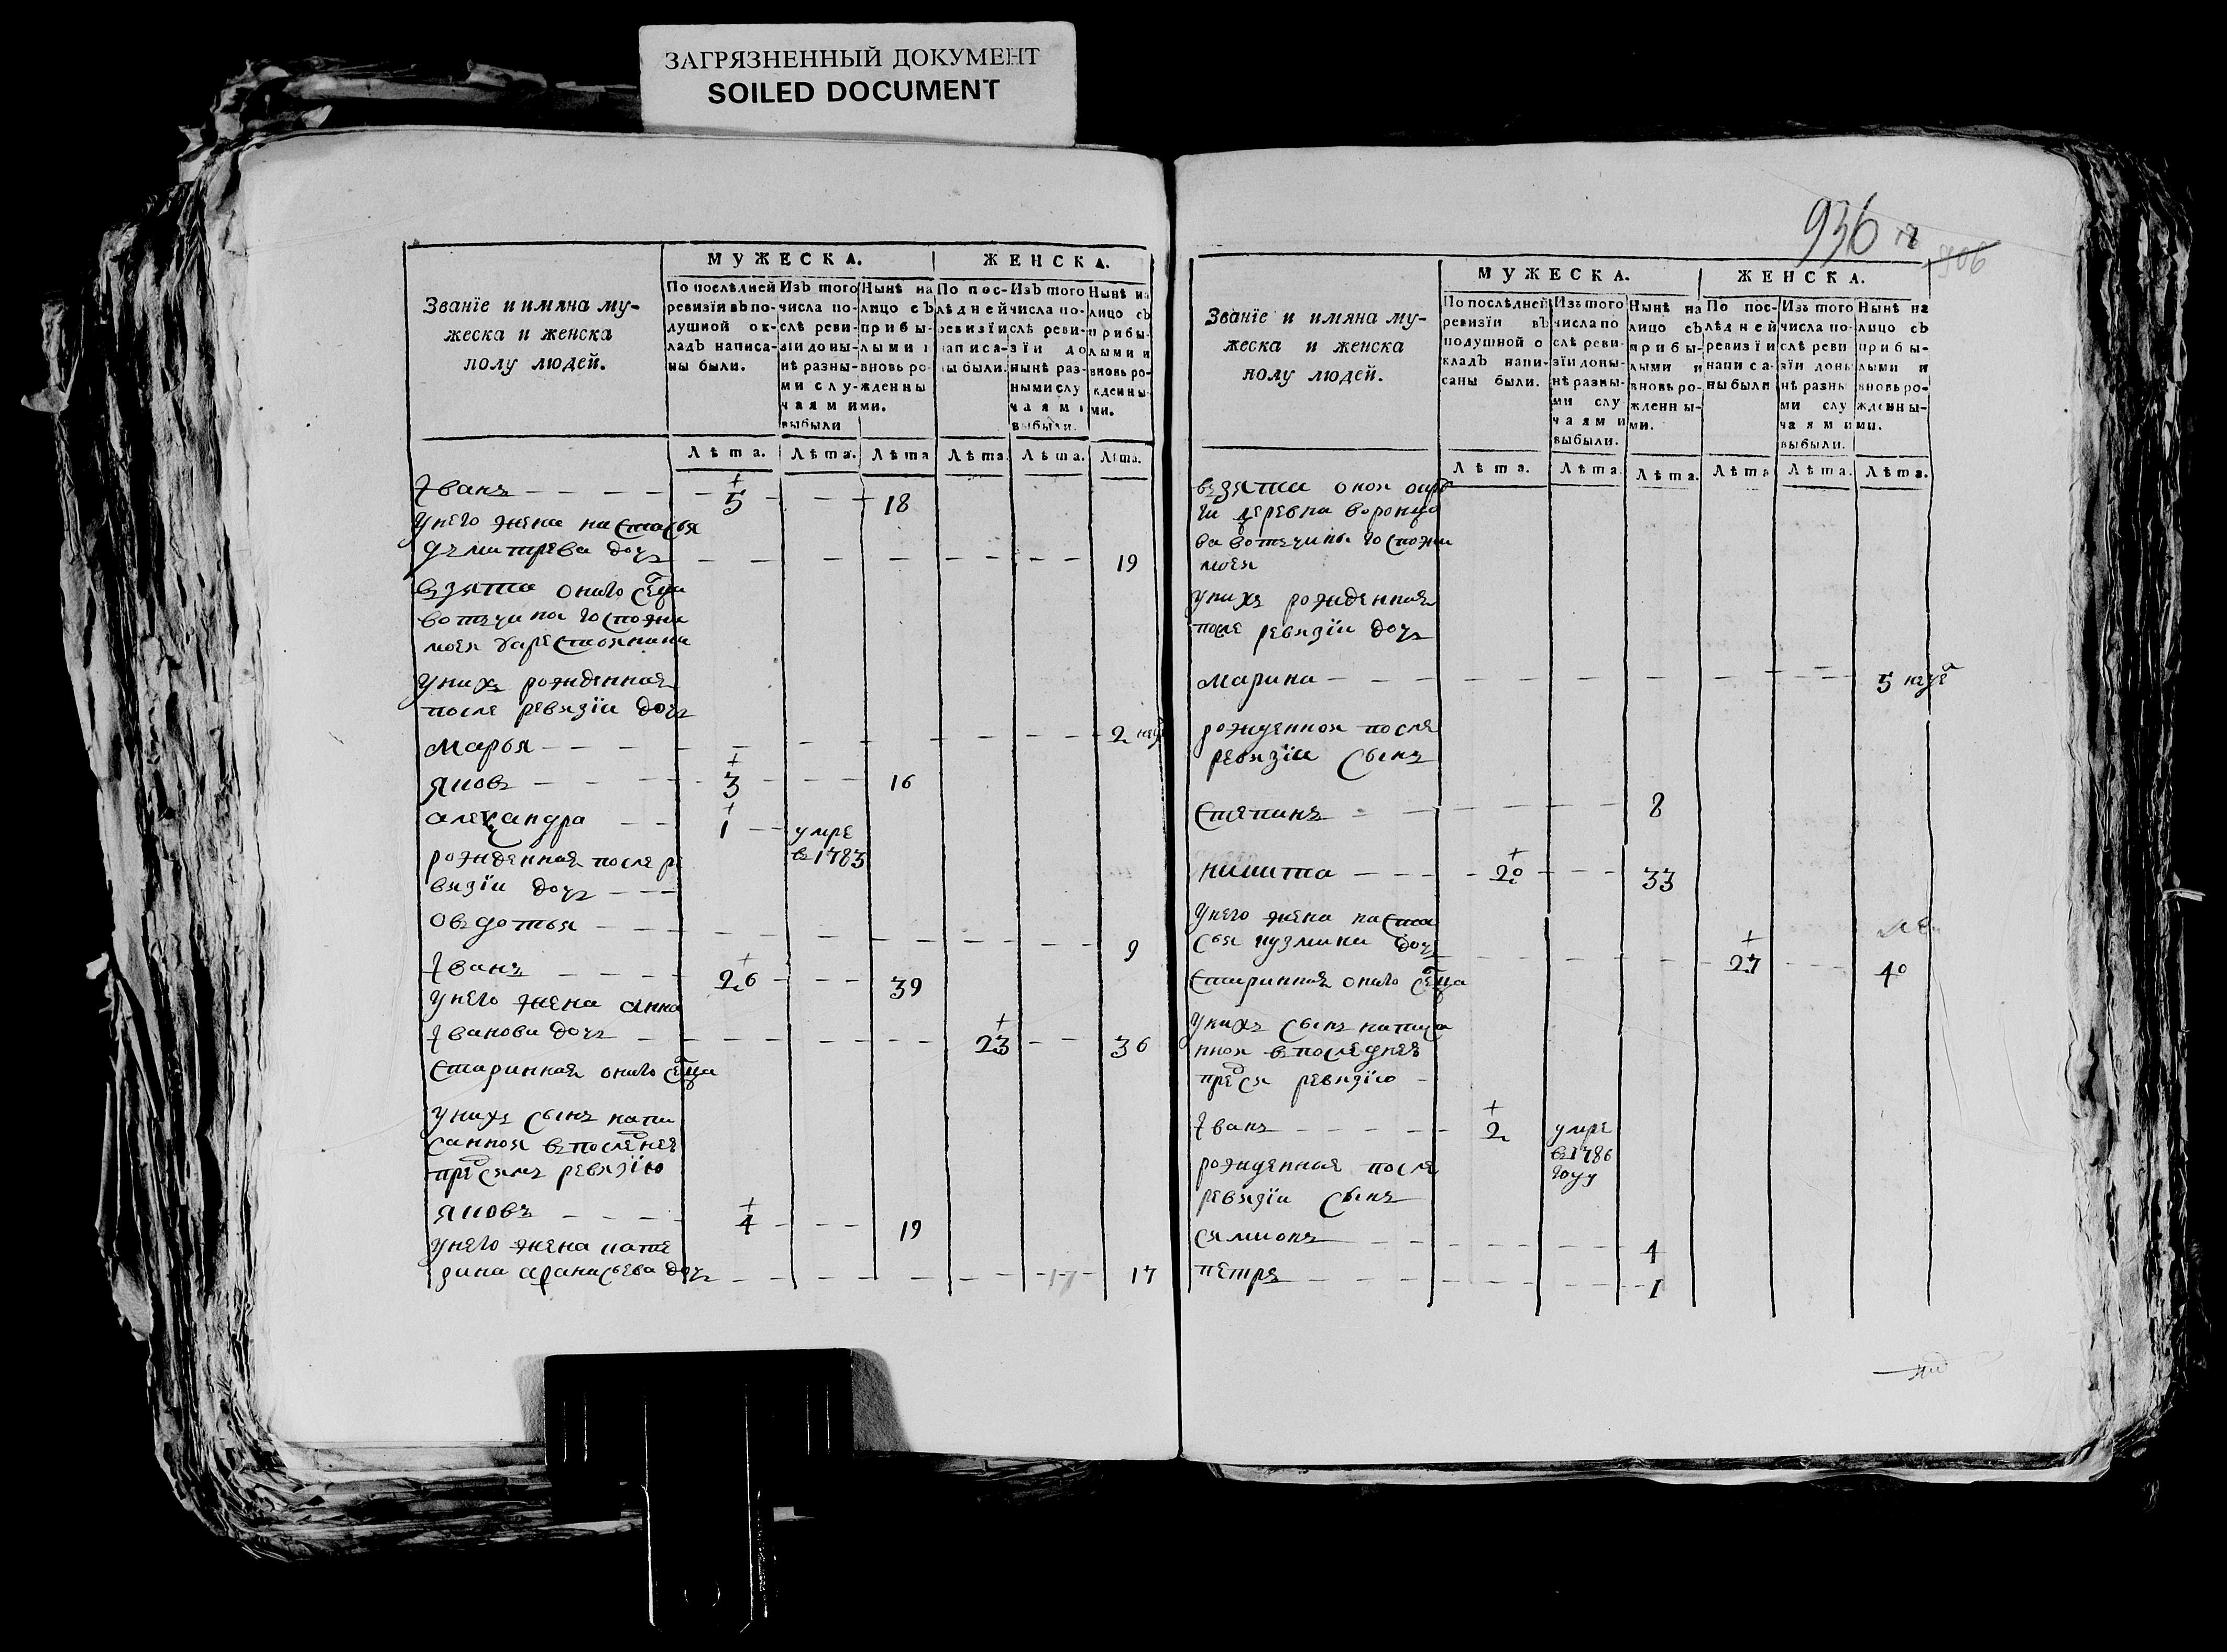 ЗАГРЯЗНЕННЫЙ ДОКУМЕНТ
SOILED DOCUMENT
Званїе и имяна му-
жеска и женска
полу людей.
МУЖЕСКА.
ЖЕНСКА.
По послѣдней ревизїи въ по-душной ок-ладъ написа-ны были.
Изъ того числа по-слѣ реви-зїи доны-нѣ разны-ми слу-чаями выбыли
Нынѣ на лицо съ прибы-лыми и вновь ро-жденны-ми.
По пос-лѣдней ревизїи написа-ны были.
Изъ того числа по-слѣ реви-зїи до нынѣ раз-ными слу чаями выбыли.
Нынѣ на лицо съ прибы-лыми и вновь ро-жденны-ми.
Лѣта. Лѣта. Лѣта Лѣта. Лѣта. Лѣта.
Iванъ 5 18
унего жена настасья
дъмитрева дочъ 19
взята оного селца
вотъчины госпожи
моея
унихъ рожденная
после ревизїи дочъ
марья 2 нед
яковъ 3 16
александра 1 умре
в 1783
рожденная после ре
визїи дочъ
овъдотья 9
Iванъ 26 39
унего жена анна
Iванова дочъ 23 36
старинная оного селца
унихъ сынъ напи
санной впоследнею
предсимъ ревизїю
яковъ 4 19
унего жена кате
рина афанасьева дочъ 17 17
936
906
Званїе и имяна му-
жеска и женска
полу людей.
МУЖЕСКА.
ЖЕНСКА.
По послѣдней ревизїи въ подушной о кладъ напи-саны были.
Изъ того числа по слѣ реви-зїи доны-нѣ разны-ми слу чаями выбыли.
Нынѣ на лицо съ прибы-лыми и вновь ро-жденны-ми.
По пос-лѣдней ревизїи написа-ны были
Изъ того числа по-слѣ реви зїи доны нѣ разны ми слу чаями выбыли.
Нынѣ на лицо съ прибы-лыми и вновь ро-жденны-ми.
Лѣта. Лѣта. Лѣта. Лѣта Лѣта. Лѣта.
взята оной окру
ги деревна воронцо
ва вотъчины госпожи
моея
унихъ рожденная
после ревизїи дочъ
марина 5 нед
рожденной после
ревизїи сынъ
степанъ 8
никита 20 33
унего жена наста
сья кузмина дочъ 27 40
старинная оного селца
унихъ сынъ написа
нной впоследнею
предсим ревизїю
Iванъ 2 умре
в 1786
году
рожденная после
ревизїи сынъ
симионъ 4
петръ 1